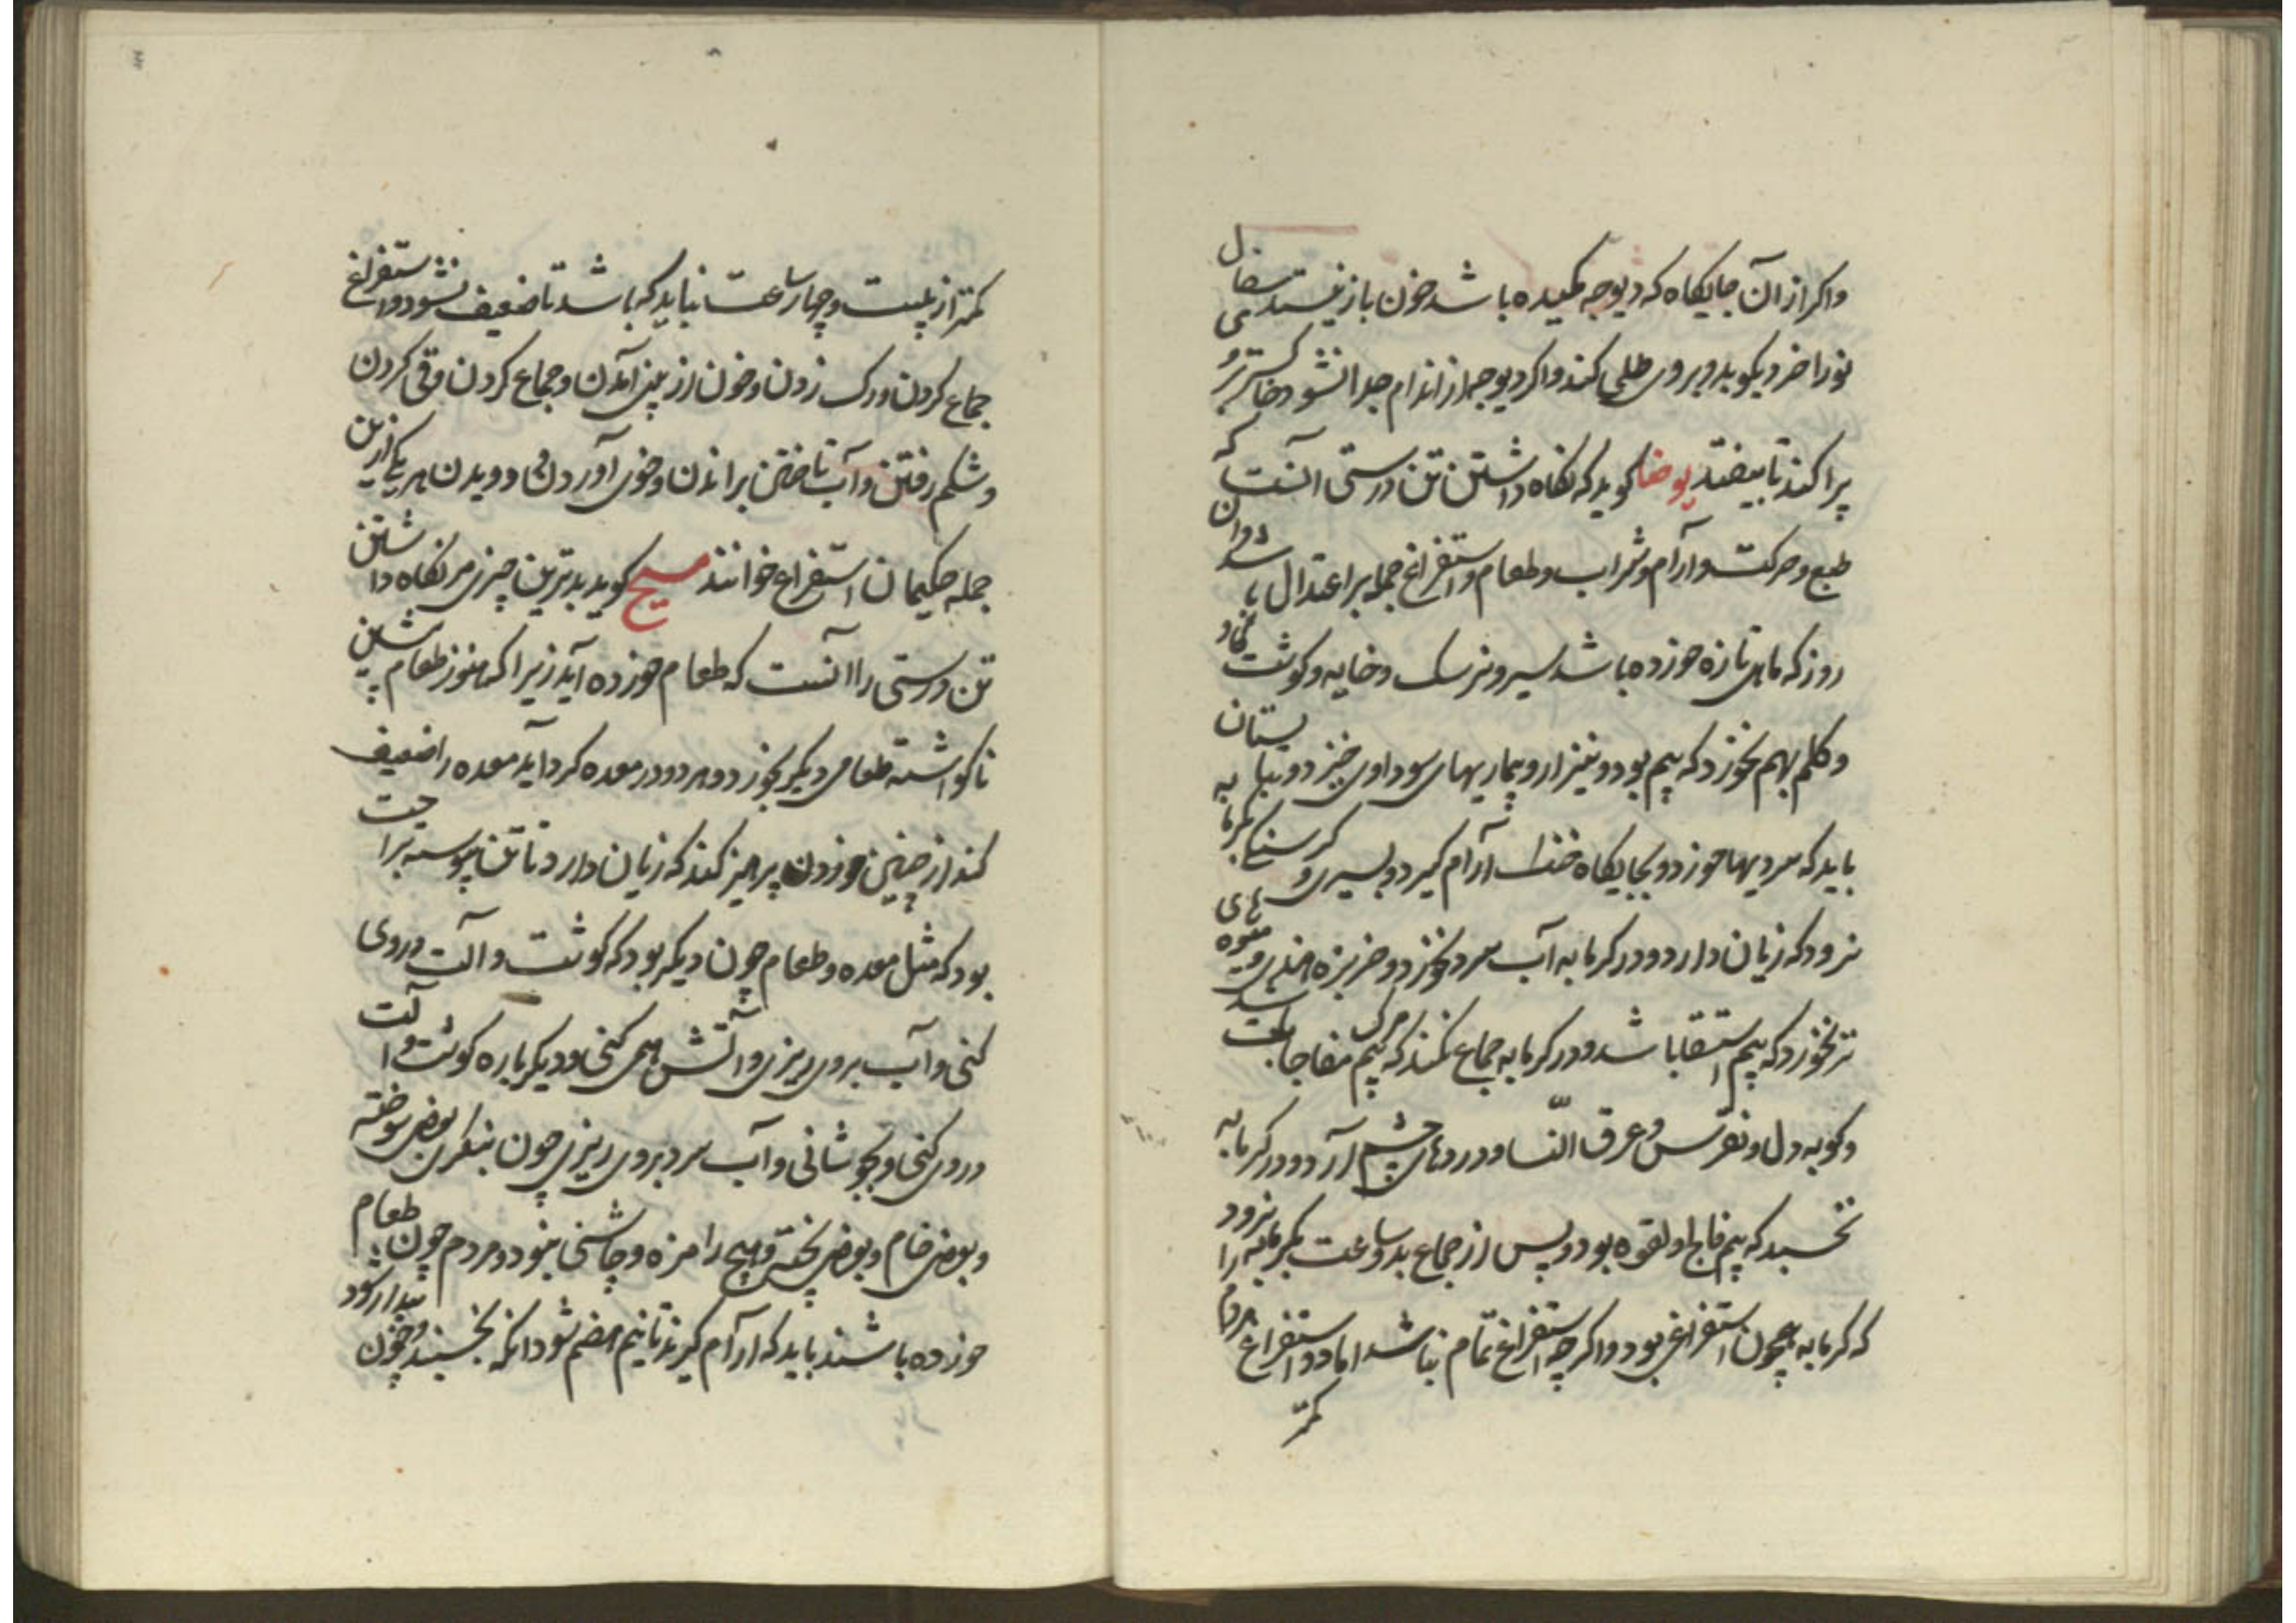 واکر از آن جایکاه که دیوجه مکیده باشد خون باز نیستد سفال
نو را خرد بکوبد و بروی طلی کند واکر دیوجه از اندام جدا نشود خاکستر برو
پراکند تا بیفتد یوحنا کوید که نکاه داشتن تن درستی آنست که
طبع و حرکت و آرام و شراب و طعام و استفراغ جمله بر اعتدال باشد و آن
روز که ماهی تازه خورده باشد سیر و نرسک و خایه و کوشت کاو
و کلم بهم نخورد که بیم بود و نیز ازو بیماریهای سوداوی خیزد و بتابستان
باید که سردیها خورد و بجایکاه خنک آرام کیرد و بسیری و کرسنکی بکرمابه
نرود که زیان دارد و در کرمابه آب سرد نخورد و خربزه هندی و میوه های
تر نخورد که بیم استسقا باشد و در کرمابه جماع نکند که بیم مرک مفاجا باشد
و کوبه دل و نقرس و عرق النسا و دردهای چشم آرد و در کرمابه
نخسبد که بیم فالج و لقوه بود و پس از جماع بدو ساعت بکرمابه نرود
که کرمابه همچون استفراغی بود و اکرچه استفراغ تمام نباشد اما دو استفراغ مردم را
کمتر
کمتر از بیست و چهار ساعت نباید که باشد تا ضعیف نشود و استفراغ
جماع کردن و رک زدن و خون از بینی آمدن و جماع کردن و قی کردن
و شکم رفتن و آب تاختن براندن و خوی آوردن و دویدن هر یکی ازین
جمله حکیمان استفراغ خوانند مسیح کوید بدترین چیزی مر نکاه داشتن
تن درستی را آنست که طعام خورده آید زیرا که هنوز طعام پیشین
ناکواشته طعامی دیکر بخورد و هر دو در معده کرد آید معده را ضعیف
کند از چنین خوردن پرهیز کند که زیان دارد تا تن پیوسته براحت
بود که مثل معده و طعام چون دیکر بود که کوشت و آلت دروی
کنی و آب بروی ریزی و آتش همی کنی و دیکر باره کوشت و آلت
دروی کنی و بجوشانی و آب سرد بروی ریزی چون بنکری بعضی سوخته
و بعضی خام و بعضی پخته و هیچ را مزه و چاشنی نبود و مردم چون طعام
خورده باشند باید که آرام کیرند تا نیم هضم شود آنکه بخسبند و چون بیدار شود